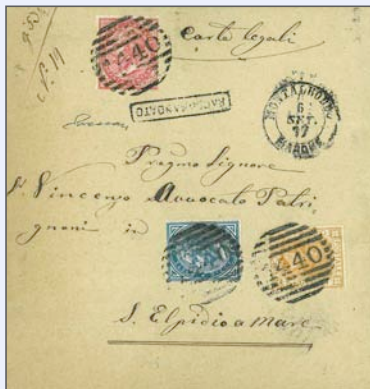 N. 11
440
Carte legali
RACCOMANDATO
MONTALBODDO
6
SET.
77
Pregmo Signore
Sr. Vincenzo Avvocato Patri
gnani in
440
S. Elpidio a Mare